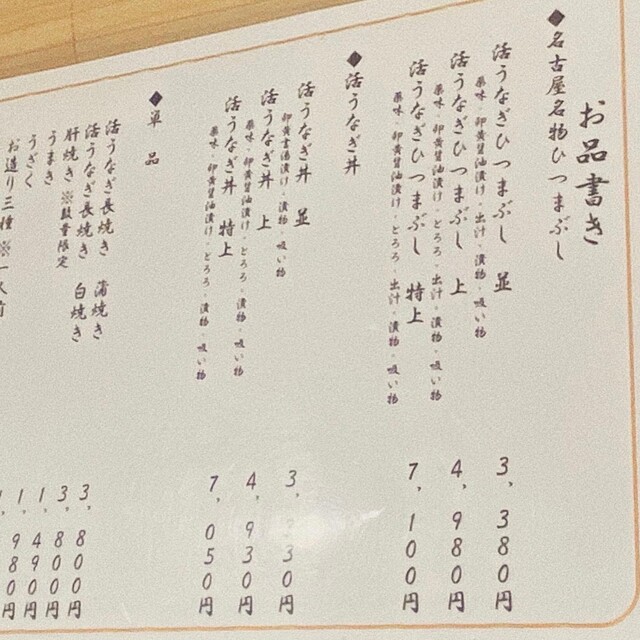 お品書き
◆名古屋名物ひつまぶし
活うなぎひつまぶし 並 3,380円
薬味・卵黄醤油漬け・出汁・漬物・吸い物
活うなぎひつまぶし 上 4,980円
薬味・卵黄醤油漬け・とろろ・出汁・漬物・吸い物
活うなぎひつまぶし 特上 7,100円
薬味・卵黄醤油漬け・とろろ・出汁・漬物・吸い物
◆活うなぎ丼
活うなぎ丼 並 3,330円
卵黄醤油漬け・漬物・吸い物
活うなぎ丼 上 4,930円
薬味・卵黄醤油漬け・とろろ・漬物・吸い物
活うなぎ丼 特上 7,050円
薬味・卵黄醤油漬け・とろろ・漬物・吸い物
◆単品
活うなぎ長焼き 蒲焼き 3,800円
活うなぎ長焼き 白焼き 3,800円
肝焼き ※数量限定
うまき 1,490円
うざく 1,980円
お造り三種※一人前